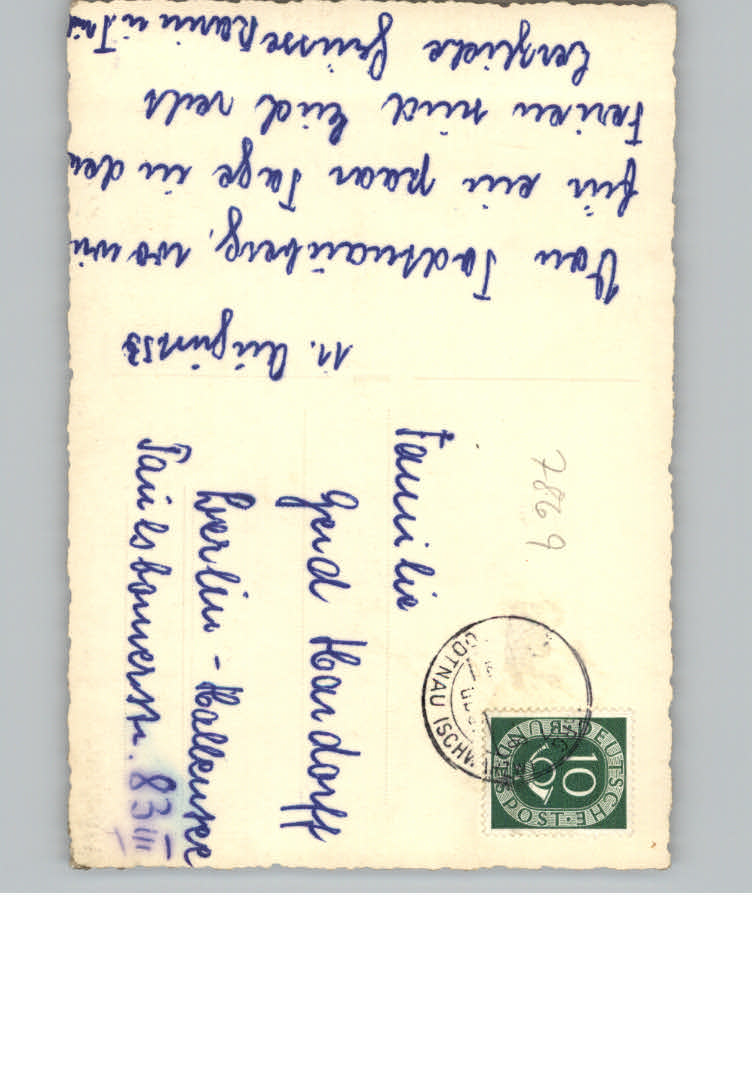 11. August 53
Von Todtnauberg, wo wir
für ein paar Tage in den
Ferien sind seid recht
herzliche Grüsse Karin u.
Familie
Gerd Hardorff
Berlin - Hallensee
Paulsbornerstr. 83 III
7869
TODTNAU (SCHW
DEUTSCHE BUNDESPOST
10